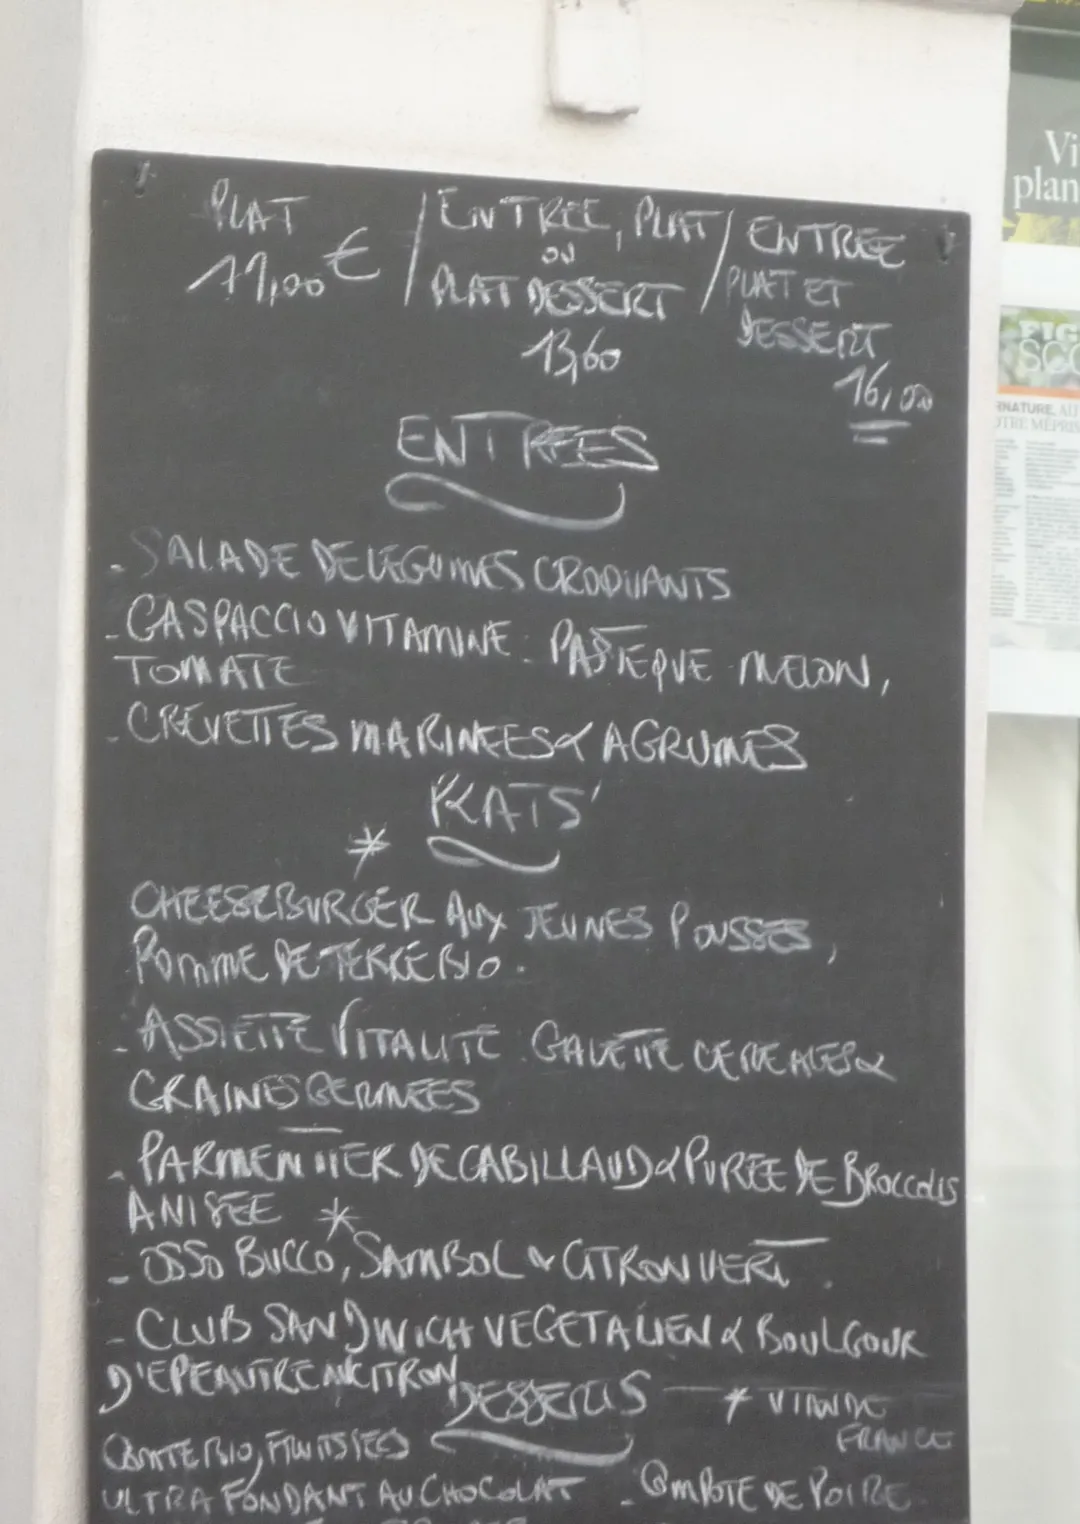 PLAT / ENTREE, PLAT / ENTREE
11,00 € OU PLAT ET
PLAT DESSERT DESSERT
13,60 16,00
ENTREES
- SALADE DE LEGUMES CROQUANTS
- GASPACCIO VITAMINE : PASTEQUE MELON,
TOMATE
- CREVETTES MARINEES & AGRUMES
PLATS
*
CHEESEBURGER AUX JEUNES POUSSES,
POMME DE TERRE BIO.
- ASSIETTE VITALITE : GALETTE CEREALES &
GRAINES GERMEES
- PARMENTIER DE CABILLAUD & PUREE DE BROCCOLIS
ANISEE *
- OSSO BUCCO, SAMBOL & CITRON VERT.
- CLUB SANDWICH VEGETALIEN & BOULGOUR
D'EPEAUTRE CITRON
DESSERTS — * VIANDE
FRANCE
COMTE BIO, FRUITS SECS
ULTRA FONDANT AU CHOCOLAT - COMPOTE DE POIRE
Vi
plan
FIG
SCO
RNATURE, AU
OTRE MÉPRIS